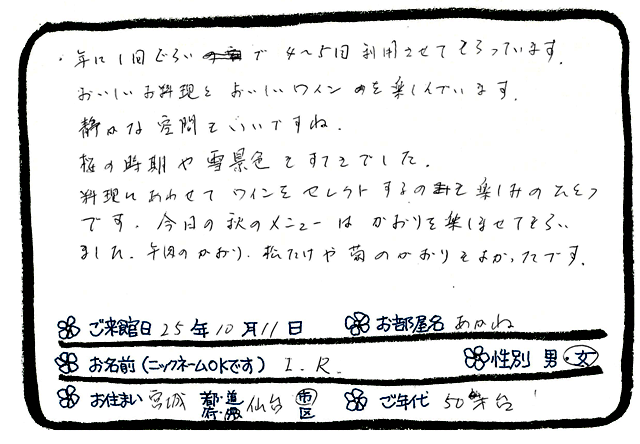 ・年に1回ぐらいで4〜5回利用させてもらっています。
おいしいお料理とおいしいワインを楽しんでいます。
静かな空間もいいですね。
桜の時期や雪景色もすてきでした。
料理にあわせてワインをセレクトするのも楽しみのひとつ
です。今日の秋のメニューはかおりを楽しませてもらい
ました。牛肉のかおり、松たけや菊のかおりもよかったです。
ご来館日 25年10月11日 お部屋名 あかね
お名前(ニックネームOKです) I.R. 性別 男・女
お住まい 宮城 都・道・府・県 仙台 市区 ご年代 50才台